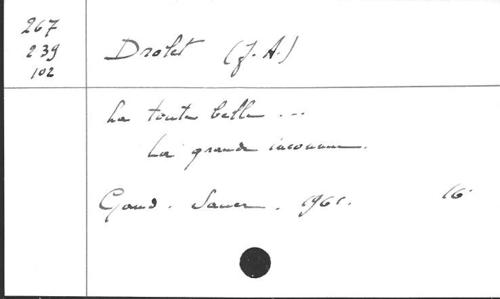 267
239
102
Drolet (J. A.)
La toute belle ...
La grande inconnue.
Gand. Sauer. 1961. 16.